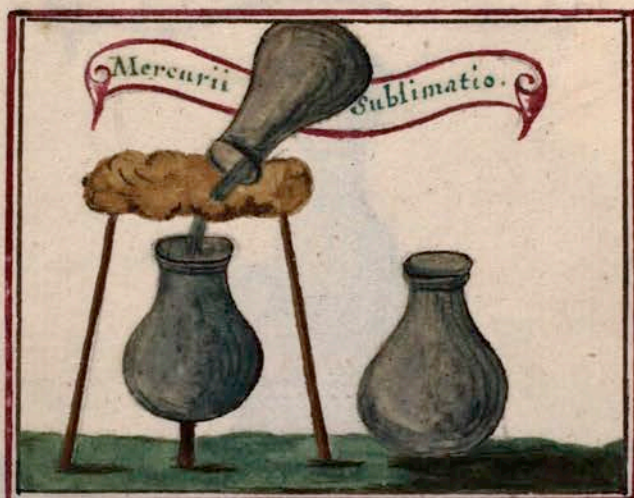 Mercurii Sublimatio.